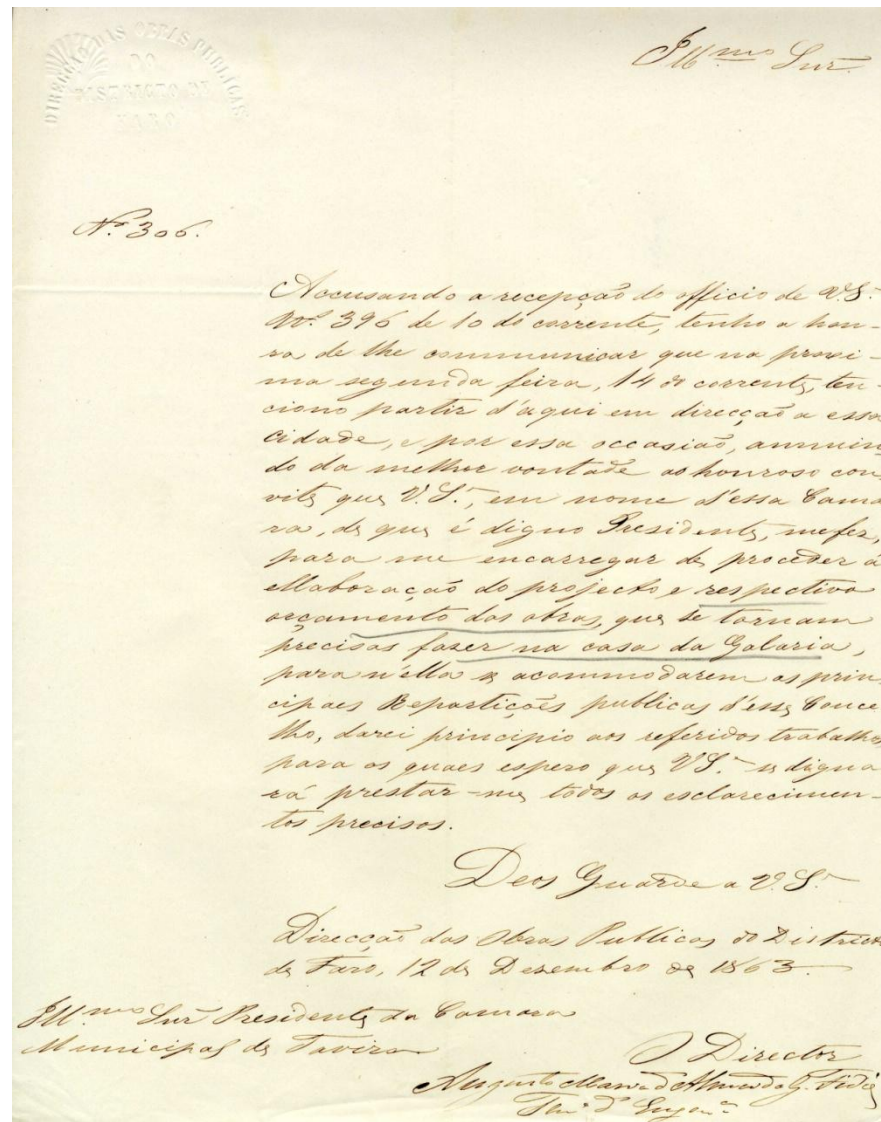 DIRECÇÃO DAS OBRAS PUBLICAS
DO
DISTRICTO DE
FARO
Ill.mo Snr.
N.º 306.
Accusando a recepção do officio de V.S.ª
N.º 396 de 10 do corrente, tenho a hon-
ra de lhe communicar que na proxi-
ma segunda feira, 14 do corrente, ten-
ciono partir d'aqui em direcção a essa
cidade, e por essa occasião, annuin-
do da melhor vontade ao honroso con-
vite que V.S.ª, em nome d'essa Cama-
ra, de que é digno Presidente, me fez,
para me encarregar de proceder á
ellaboração do projecto e respectivo
orçamento das obras, que se tornam
precisas fazer na casa da Galaria,
para n'ella se acommodarem as prin-
cipaes Repartições publicas d'esse Conce
lho, darei principio aos referidos trabalhos
para os quaes espero que V.S.ª se digna
rá prestar-me todos os esclarecimen-
tos precisos.
Deos Guarde a V.S.ª
Direcção das Obras Publicas do Districto
de Faro, 12 de Dezembro de 1863.
Ill.mo Snr Presidente da Camara
Municipal de Tavira
O Director
Augusto Maria d'Almeida G. Fidié
Ten. d'Engen.ª